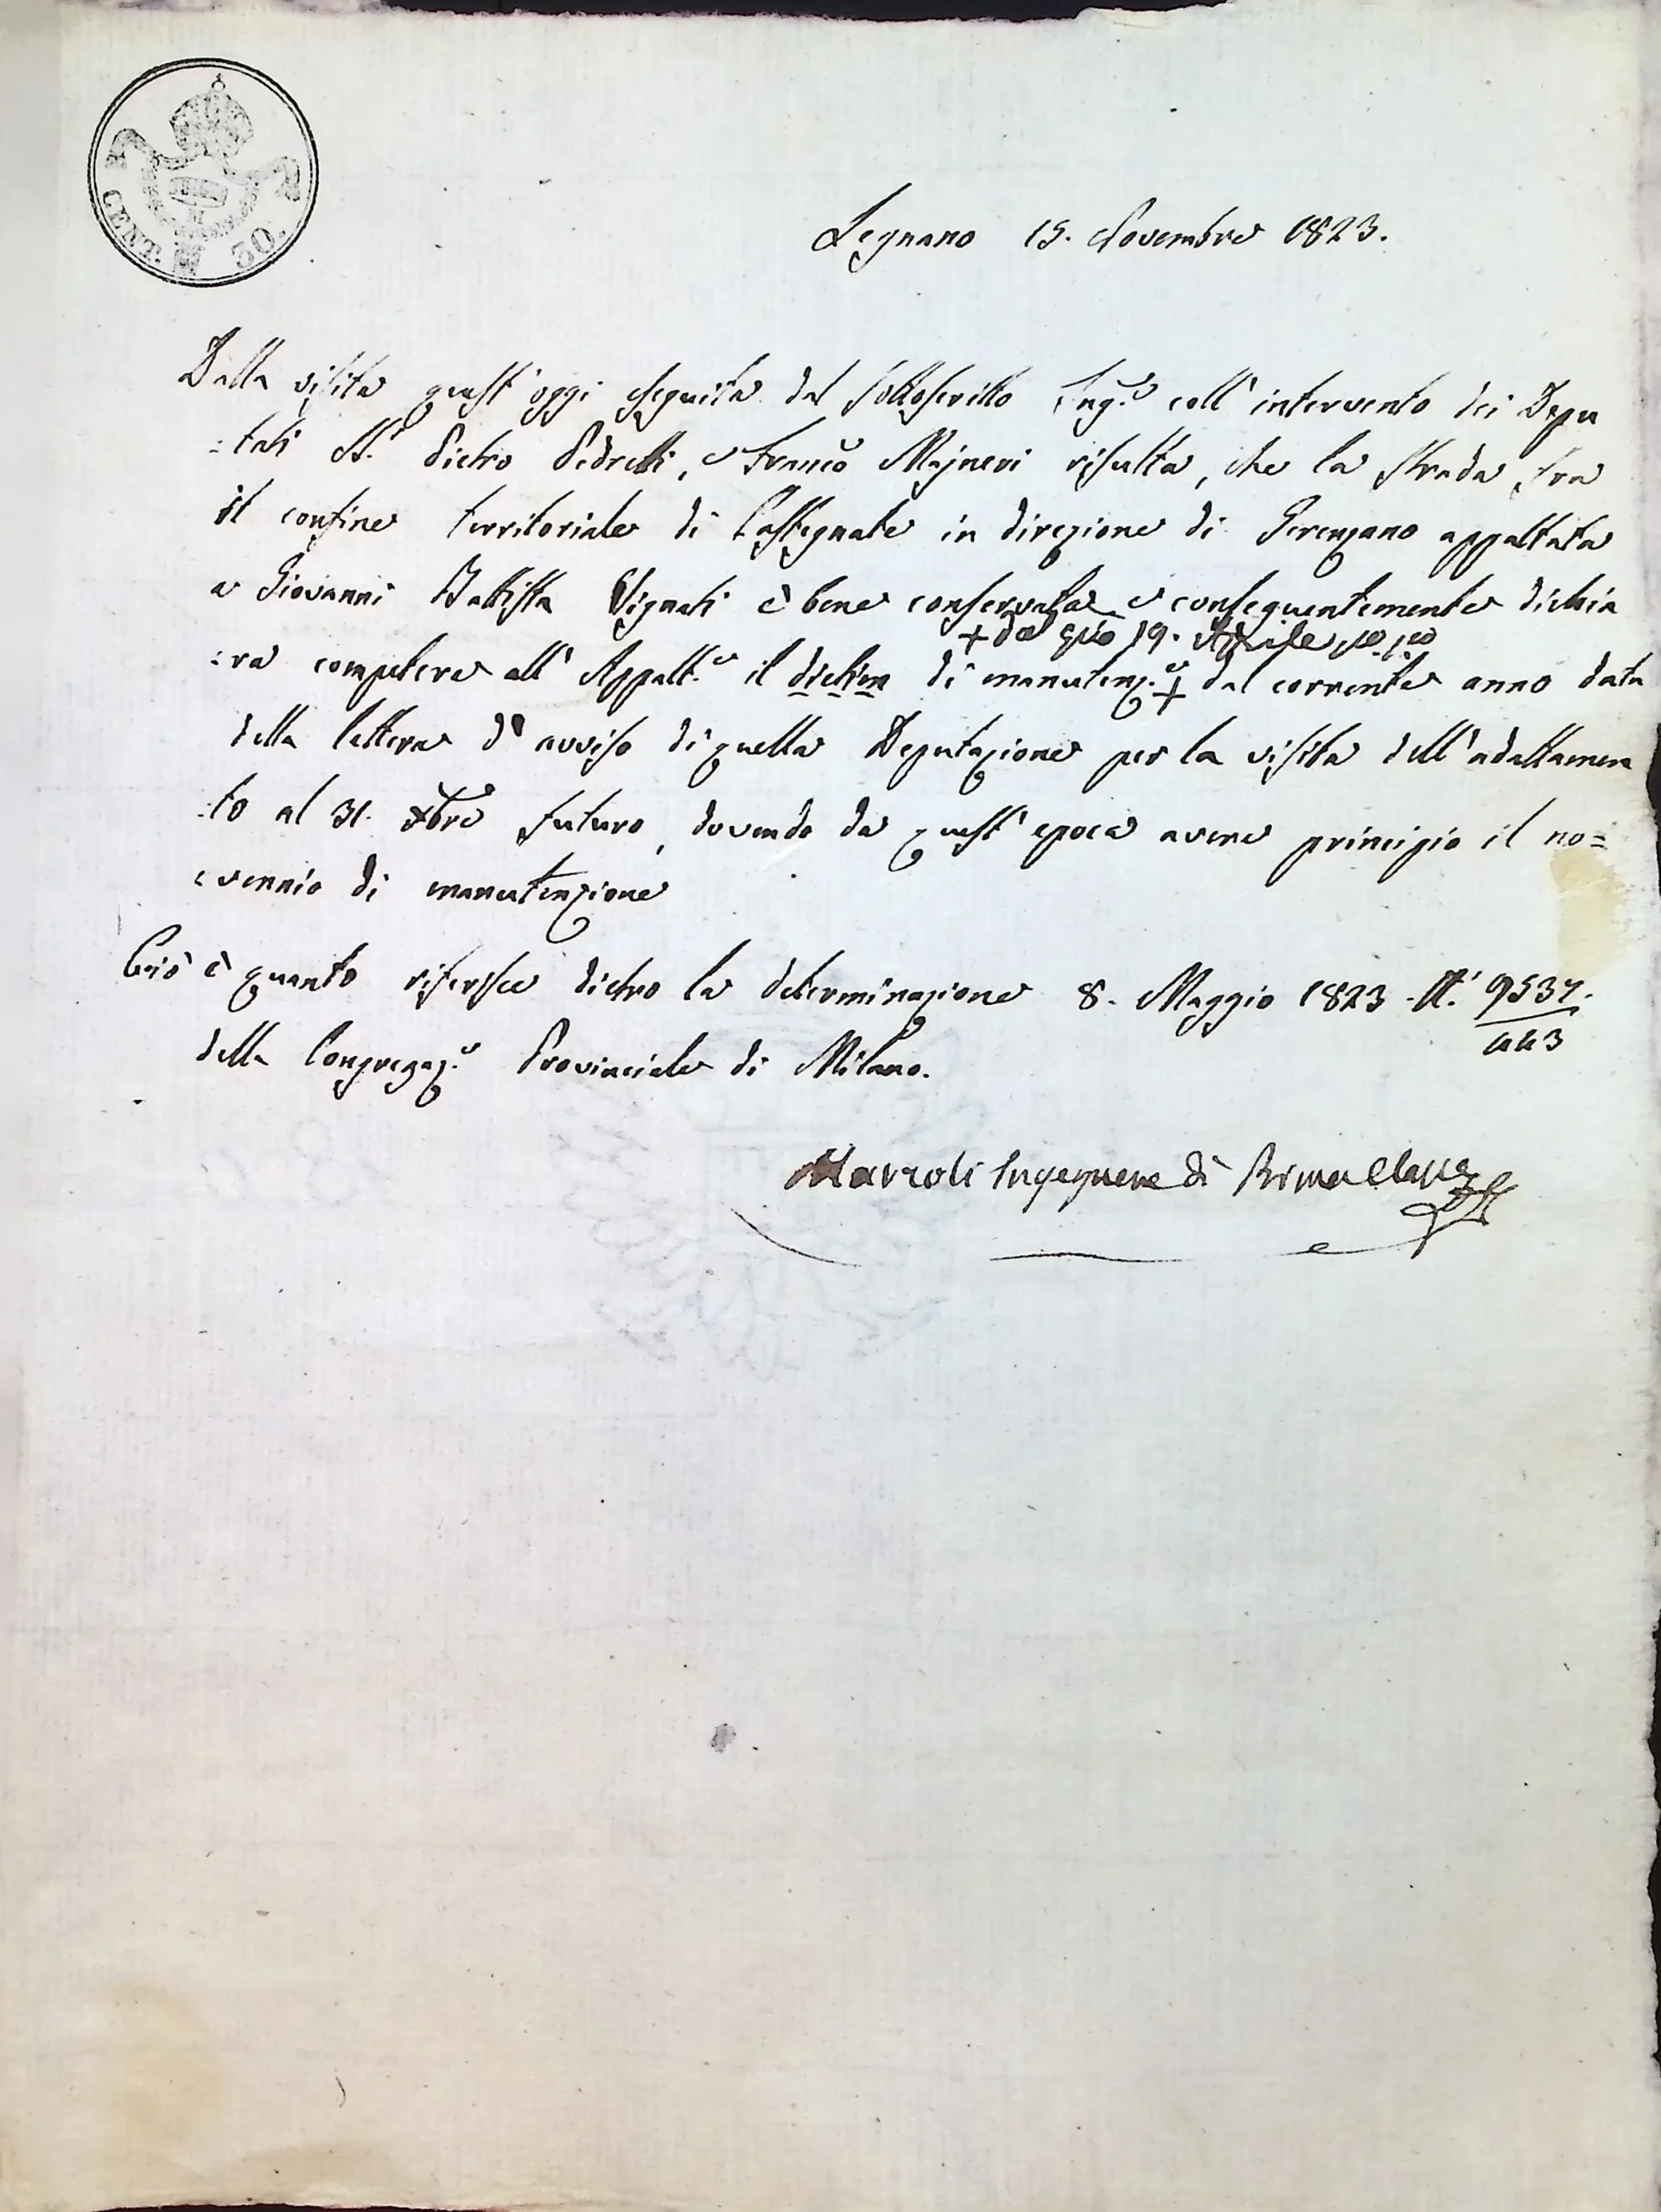 CENT. 30.
Legnano 15. Novembre 1823.
Dalla visita quest'oggi eseguita dal sottoscritto Ing.e coll'intervento dei Depu
:tati SS.i Pietro Pedretti, e Franco Majneri risulta, che la strada fra
il confine territoriale di Castegnate in direzione di Gerenzano appaltata
a Giovanni Battista Vignati è bene conservata e conseguentemente dichia
+ dal gno 19. Aprile
:ra competere all'Appalt.e il dietim di manutenz.e + del corrente anno data
della lettera d'avviso di quella Deputazione per la visita dell'adattamen
:to al 31. Xbre futuro, dovendo da quest'epoca avere principio il no=
:vennio di manutenzione
Ciò è quanto riferisce dietro la determinazione 8. Maggio 1823 N.
della Congregaz.e Provinciale di Milano.
Ingegnere di Prima Classe